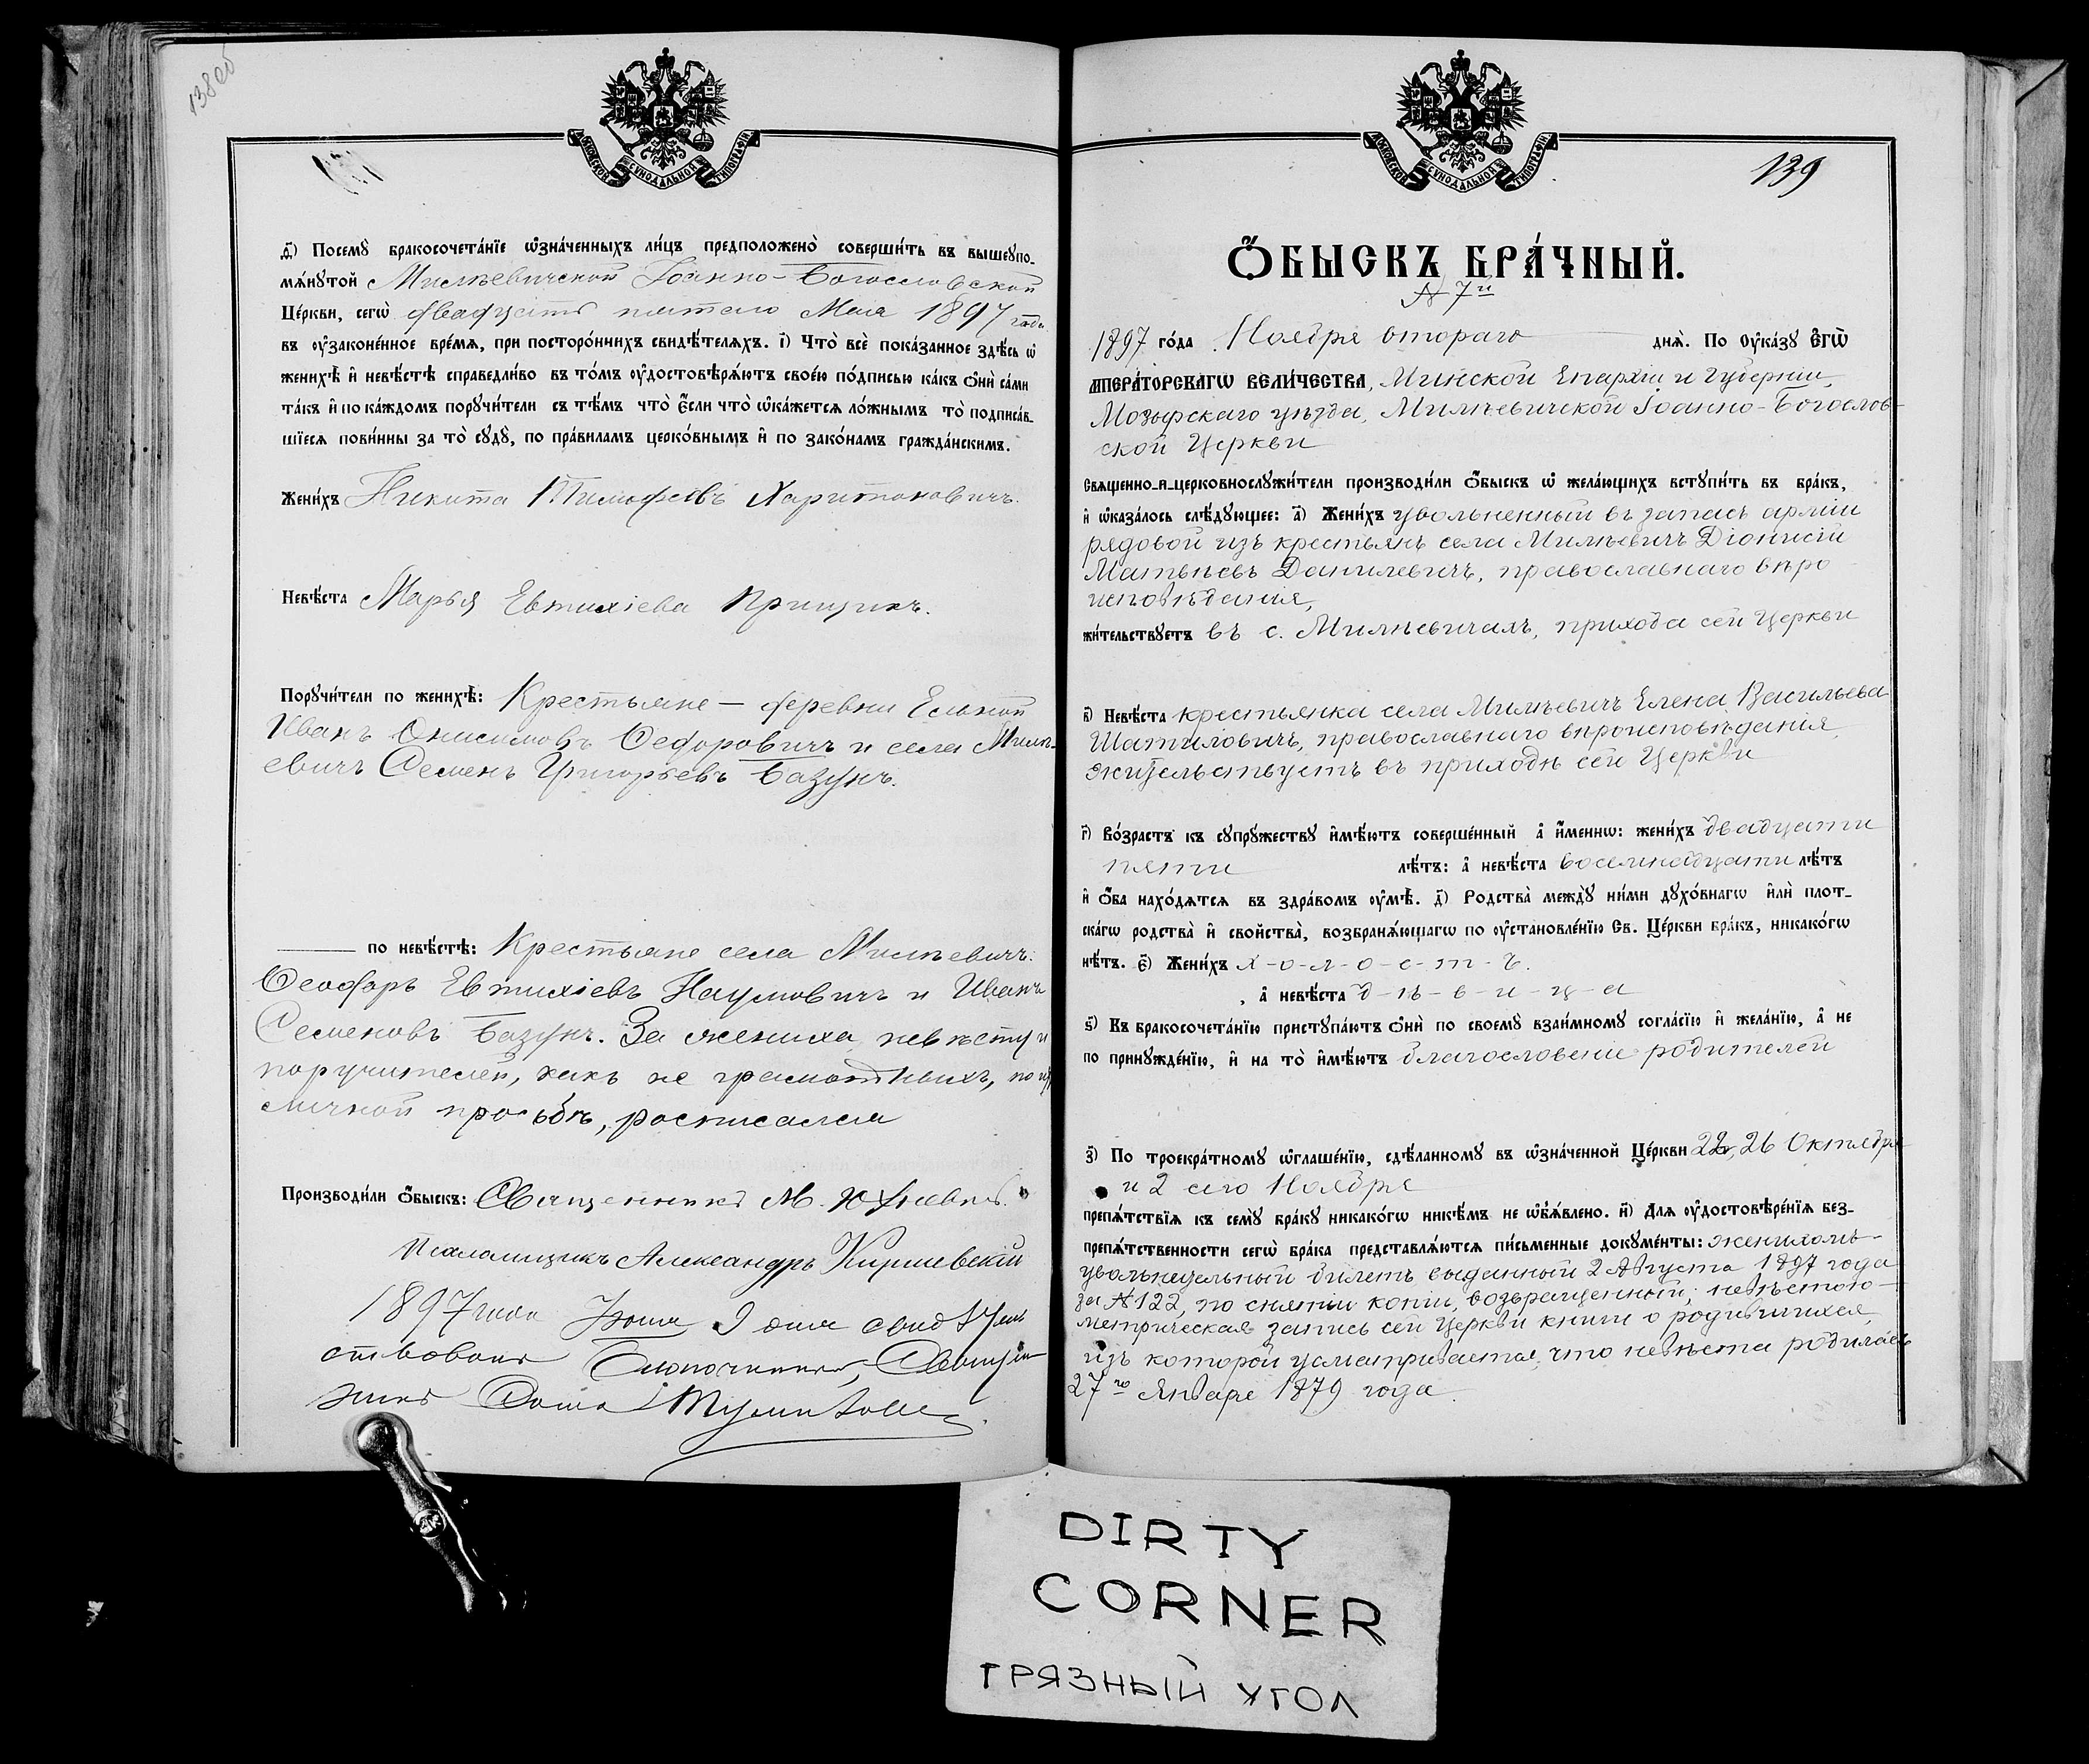 138об
МОСКОВСКОЙ СѴНОДАЛЬНОЙ ТИПОГРАФІИ
Посемꙋ̀ бракосочета́нїе ѡ҆зна́ченныхъ ли́цъ предположено̀ соверши́ть въ вышеꙋпо-
мѧ́нꙋтой Милѣевичской Іоанно-Богословской
Це́ркви, сегѡ̀ двадцать пятаго Мая 1897 года
въ ᲂу҆зако́ненное вре́мѧ, при посторо́ннихъ свидѣ́телѧхъ. і҃) Что̀ всѐ пока́занное здѣ́сь ѡ҆
женихѣ̀ и҆ невѣ́стѣ справедли́во въ то́мъ ᲂу҆достовѣрѧ́ютъ свое́ю по́дписью ка́къ ѻ҆нѝ са́ми
та́къ и҆ по ка́ждомъ порꙋчи́тели съ тѣ́мъ что̀ є҆́сли что̀ ѡ҆ка́жетсѧ ло́жнымъ то̀ подписа́в-
шїесѧ пови́нны за то̀ сꙋдꙋ̀, по пра́виламъ церко́внымъ и҆ по зако́намъ гражда́нскимъ.
Жени́хъ Никита Тимофеевъ Харитоновичъ.
Невѣ́ста Марья Евтихіева Прищикъ.
Порꙋчи́тели по женихѣ̀: Крестьяне — деревни Ельной
Иванъ Онисимовъ Ѳедоровичъ и села Милѣ-
евичъ Семенъ Григорьевъ Базунъ.
по невѣ́стѣ: Крестьяне села Милѣевичъ:
Ѳеодоръ Евтихіевъ Наумовичъ и Иванъ
Семеновъ Базунъ. За жениха, невѣсту и
поручителей, какъ не грамотныхъ, по ихъ
личной просьбѣ, росписался
Производи́ли ѻ҆́быскъ: Священникъ М.
Псаломщикъ Александръ Киркевскій
1897 года Іюля 9 дня свидѣтель
ствовалъ Благочинный, Священ-
никъ
МОСКОВСКОЙ СѴНОДАЛЬНОЙ ТИПОГРАФІИ
139
Ѻ҆́БЫСКЪ БРА́ЧНЫЙ.
№ 7й
1897 го́да Ноября втораго днѧ̀. По ᲂу҆ка́зꙋ Е҆ГѠ̀
И҆МПЕРА́ТОРСКАГѠ ВЕЛИ́ЧЕСТВА, Минской Епархіи и Губерніи,
Мозырскаго уѣзда, Милѣевичской Іоанно-Богослов-
ской Церкви
Свѧщенно-и҆-церковнослꙋжи́тели производи́ли ѻ҆́быскъ ѡ҆ жела́ющихъ встꙋпи́ть въ бра́къ,
и҆ ѡ҆каза́лось слѣ́дꙋющее: а҃) Жени́хъ уволенный въ запасъ арміи
рядовой изъ крестьянъ села Милѣевичъ Діонисій
Матвѣевъ Данилевичъ, православнаго вѣро
исповѣданія,
жи́тельствꙋетъ въ с. Милѣевичахъ, прихода сей Церкви
в҃) Невѣ́ста крестьянка села Милѣевичъ Елена Васильева
Шатиловичъ, православнаго вѣроисповѣданія,
жительствуетъ въ приходѣ сей Церкви
г҃) Во́зрастъ къ сꙋпрꙋ́жествꙋ и҆мѣ́ютъ соверше́нный а҆ и҆́меннѡ: жени́хъ двадцати
пяти лѣ́тъ: а҆ невѣ́ста восемнадцати лѣ́тъ
и҆ ѻ҆́ба нахо́дѧтсѧ въ здра́вомъ ᲂу҆мѣ̀. д҃) Родства̀ междꙋ̀ ни́ми дꙋхо́внагѡ и҆лѝ плот-
ска́гѡ родства̀ и҆ свойства̀, возбранѧ́ющагѡ по ᲂу҆становле́нїю Св. Це́ркви бра́къ, никако́гѡ
нѣ́тъ. є҃) Жени́хъ х-о-л-о-с-т-ъ.
, а҆ невѣ́ста д-ѣ-в-и-ц-а
ѕ҃) Къ бракосочета́нїю пристꙋпа́ютъ ѻ҆нѝ по своемꙋ̀ взаи́мномꙋ согла́сїю и҆ жела́нїю, а҆ не
по принꙋжде́нїю, и҆ на то̀ и҆мѣ́ютъ благословеніе родителей
з҃) По троекра́тномꙋ ѡ҆глаше́нїю, сдѣ́ланномꙋ въ ѡ҆зна́ченной Це́ркви 22, 26 Октября
и 2 сего Ноября
препѧ́тствїѧ къ семꙋ̀ бра́кꙋ никако́гѡ никѣ́мъ не ѡ҆б̾ѧ́влено. и҃) Длѧ ᲂу҆достовѣре́нїѧ без-
препѧ́тственности сегѡ̀ бра́ка представлѧ́ютсѧ пи́сьменные докꙋме́нты: женихомъ-
увольнительный билетъ выданный 2 Августа 1897 года
за № 122, по снятіи копіи, возвращенный; невѣстою-
метрическая запись сей Церкви книги о родившихся,
изъ которой усматривается, что невѣста родилась
27го Января 1879 года.
DIRTY
CORNER
ГРЯЗНЫЙ УГОЛ